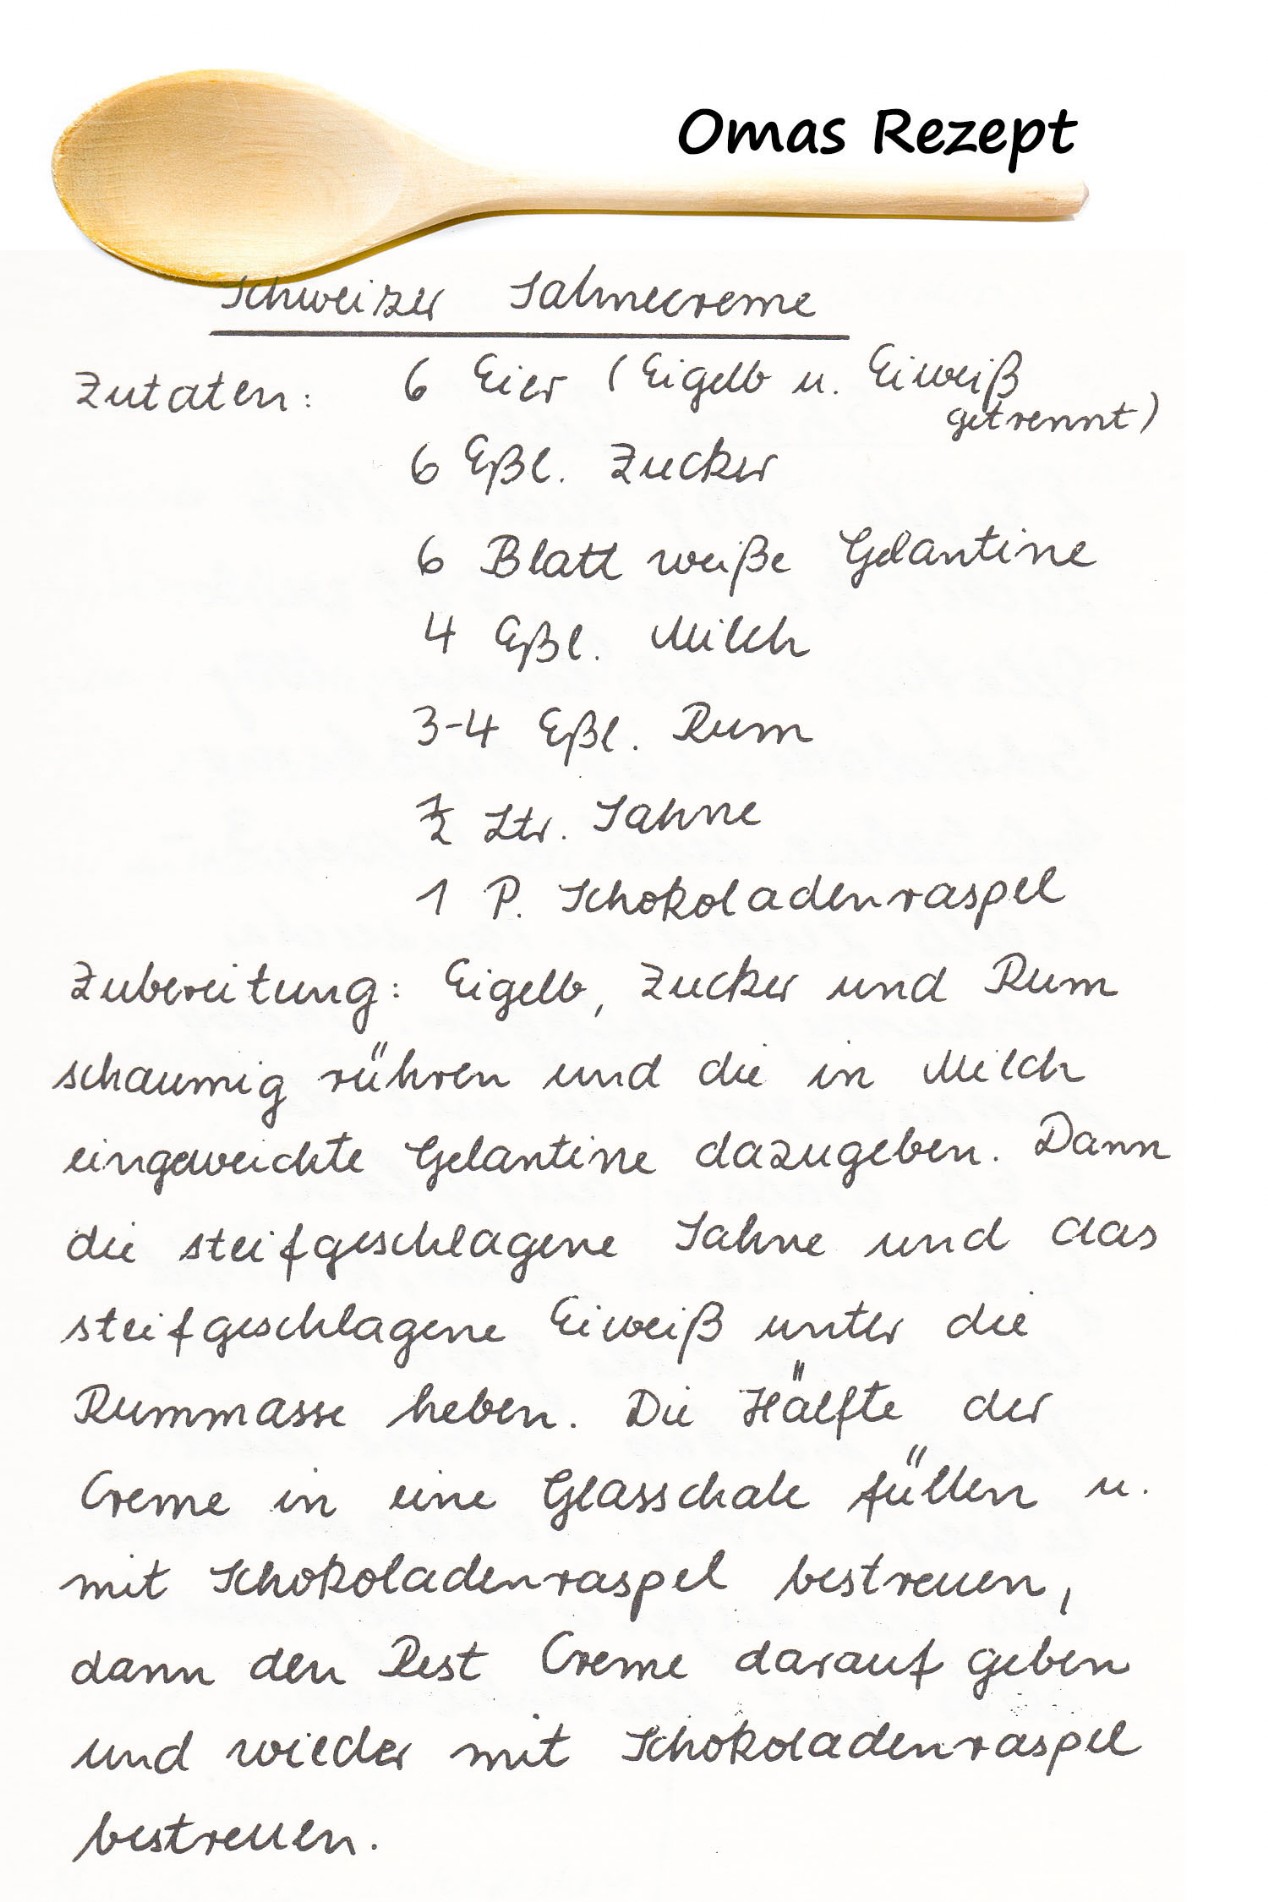 Omas Rezept
Schweizer Sahnecreme
Zutaten: 6 Eier (Eigelb u. Eiweiß
getrennt)
6 Eßl. Zucker
6 Blatt weiße Gelantine
4 Eßl. Milch
3-4 Eßl. Rum
1/2 Ltr. Sahne
1 P. Schokoladenraspel
Zubereitung: Eigelb, Zucker und Rum
schaumig rühren und die in Milch
eingeweichte Gelantine dazugeben. Dann
die steifgeschlagene Sahne und das
steifgeschlagene Eiweiß unter die
Rummasse heben. Die Hälfte der
Creme in eine Glasschale füllen u.
mit Schokoladenraspel bestreuen,
dann den Rest Creme darauf geben
und wieder mit Schokoladenraspel
bestreuen.